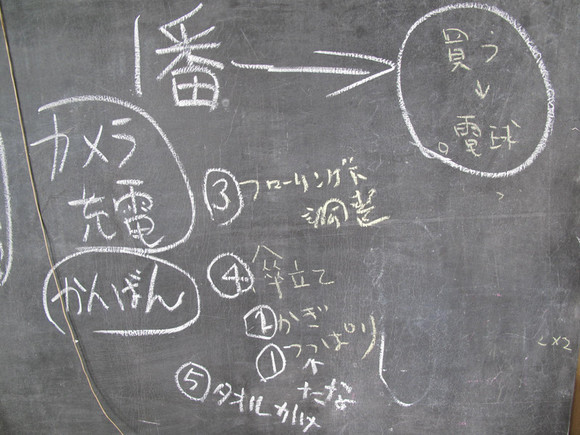 1番
買う
↓
電球
カメラ
充電
かんばん
③フローリング下
調査
④竿立て
②かぎ
①つっぱり
たな
⑤タオル
×2